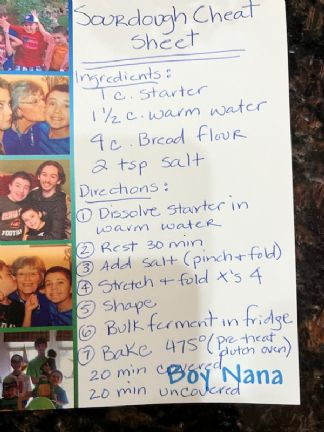 Sourdough Cheat
Sheet
Ingredients:
1 c. starter
1 1/2 c. warm water
4 c. Bread flour
2 tsp salt
Directions:
① Dissolve starter in
warm water
② Rest 30 min
③ Add salt (pinch + fold)
④ Stretch + fold X's 4
⑤ Shape
⑥ Bulk ferment in fridge
⑦ Bake 475° (Pre-heat
dutch oven)
20 min covered
20 min uncovered
Boy Nana